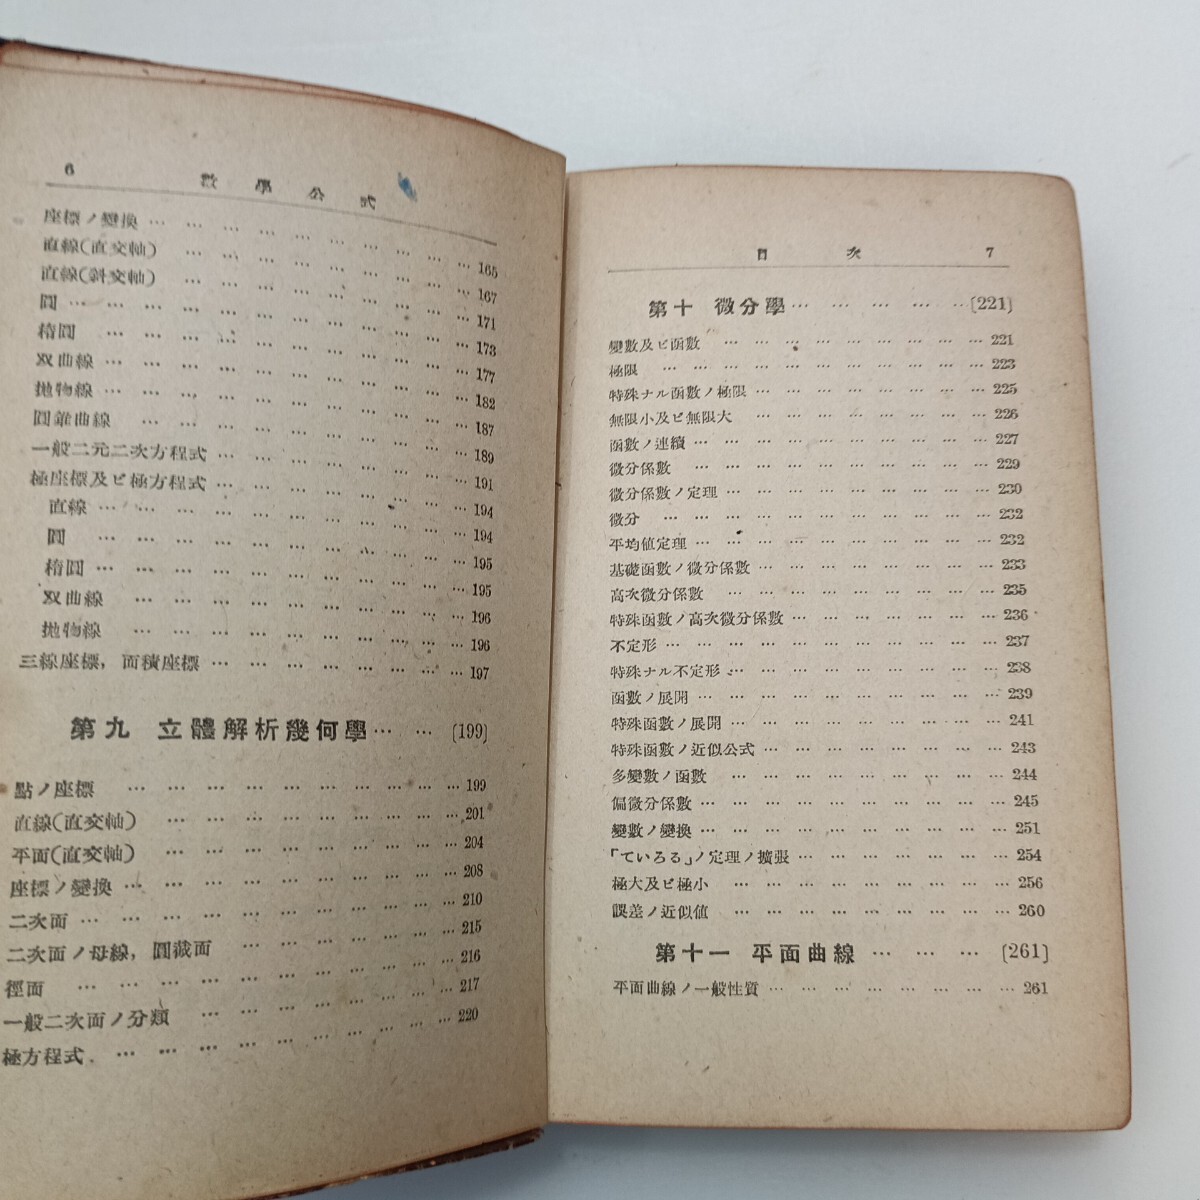 6 數學公式
座標ノ變換 … … … … … … … … … 165
直線(直交軸) … … … … … … … … 167
直線(斜交軸) … … … … … … … … 171
圓 … … … … … … … … … … … 173
楕圓 … … … … … … … … … … 177
双曲線 … … … … … … … … … … 182
抛物線 … … … … … … … … … … 187
圓錐曲線 … … … … … … … … … 189
一般二元二次方程式 … … … … … … … 191
極座標及ビ極方程式 … … … … … … … 194
直線 … … … … … … … … … … 194
圓 … … … … … … … … … … 195
楕圓 … … … … … … … … … … 195
双曲線 … … … … … … … … … 196
抛物線 … … … … … … … … … 196
三線座標, 面積座標 … … … … … … … 197
第九 立體解析幾何學 … … [199]
點ノ座標 … … … … … … … … … 199
直線(直交軸) … … … … … … … … 201
平面(直交軸) … … … … … … … … 204
座標ノ變換 … … … … … … … … … 208
二次面 … … … … … … … … … … 210
二次面ノ母線, 圓截面 … … … … … … 215
徑面 … … … … … … … … … … 216
一般二次面ノ分類 … … … … … … … 217
極方程式 … … … … … … … … … 220
目次 7
第十 微分學 … … … … … [221]
變數及ビ函數 … … … … … … … … … 221
極限 … … … … … … … … … … 223
特殊ナル函數ノ極限 … … … … … … … 225
無限小及ビ無限大 … … … … … … … 226
函數ノ連續 … … … … … … … … … 227
微分係數 … … … … … … … … … 229
微分係數ノ定理 … … … … … … … … 230
微分 … … … … … … … … … … 232
平均値定理 … … … … … … … … … 232
基礎函數ノ微分係數 … … … … … … … 233
高次微分係數 … … … … … … … … 235
特殊函數ノ高次微分係數 … … … … … … 236
不定形 … … … … … … … … … … 237
特殊ナル不定形 … … … … … … … … 238
函數ノ展開 … … … … … … … … … 239
特殊函數ノ展開 … … … … … … … … 241
特殊函數ノ近似公式 … … … … … … … 243
多變數ノ函數 … … … … … … … … 244
偏微分係數 … … … … … … … … … 245
變數ノ變換 … … … … … … … … … 251
「ていろる」ノ定理ノ擴張 … … … … … … 254
極大及ビ極小 … … … … … … … … 256
誤差ノ近似値 … … … … … … … … 260
第十一 平面曲線 … … … [261]
平面曲線ノ一般性質 … … … … … … … 261